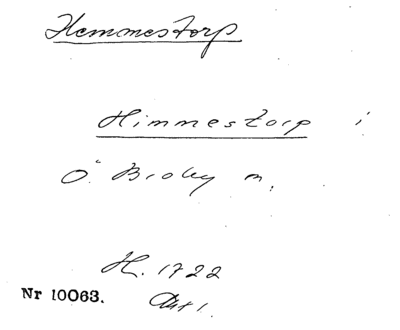 Hemmestorp
Himmestorp i
Ö. Broby sn.
H. 1722
Nr 10063.